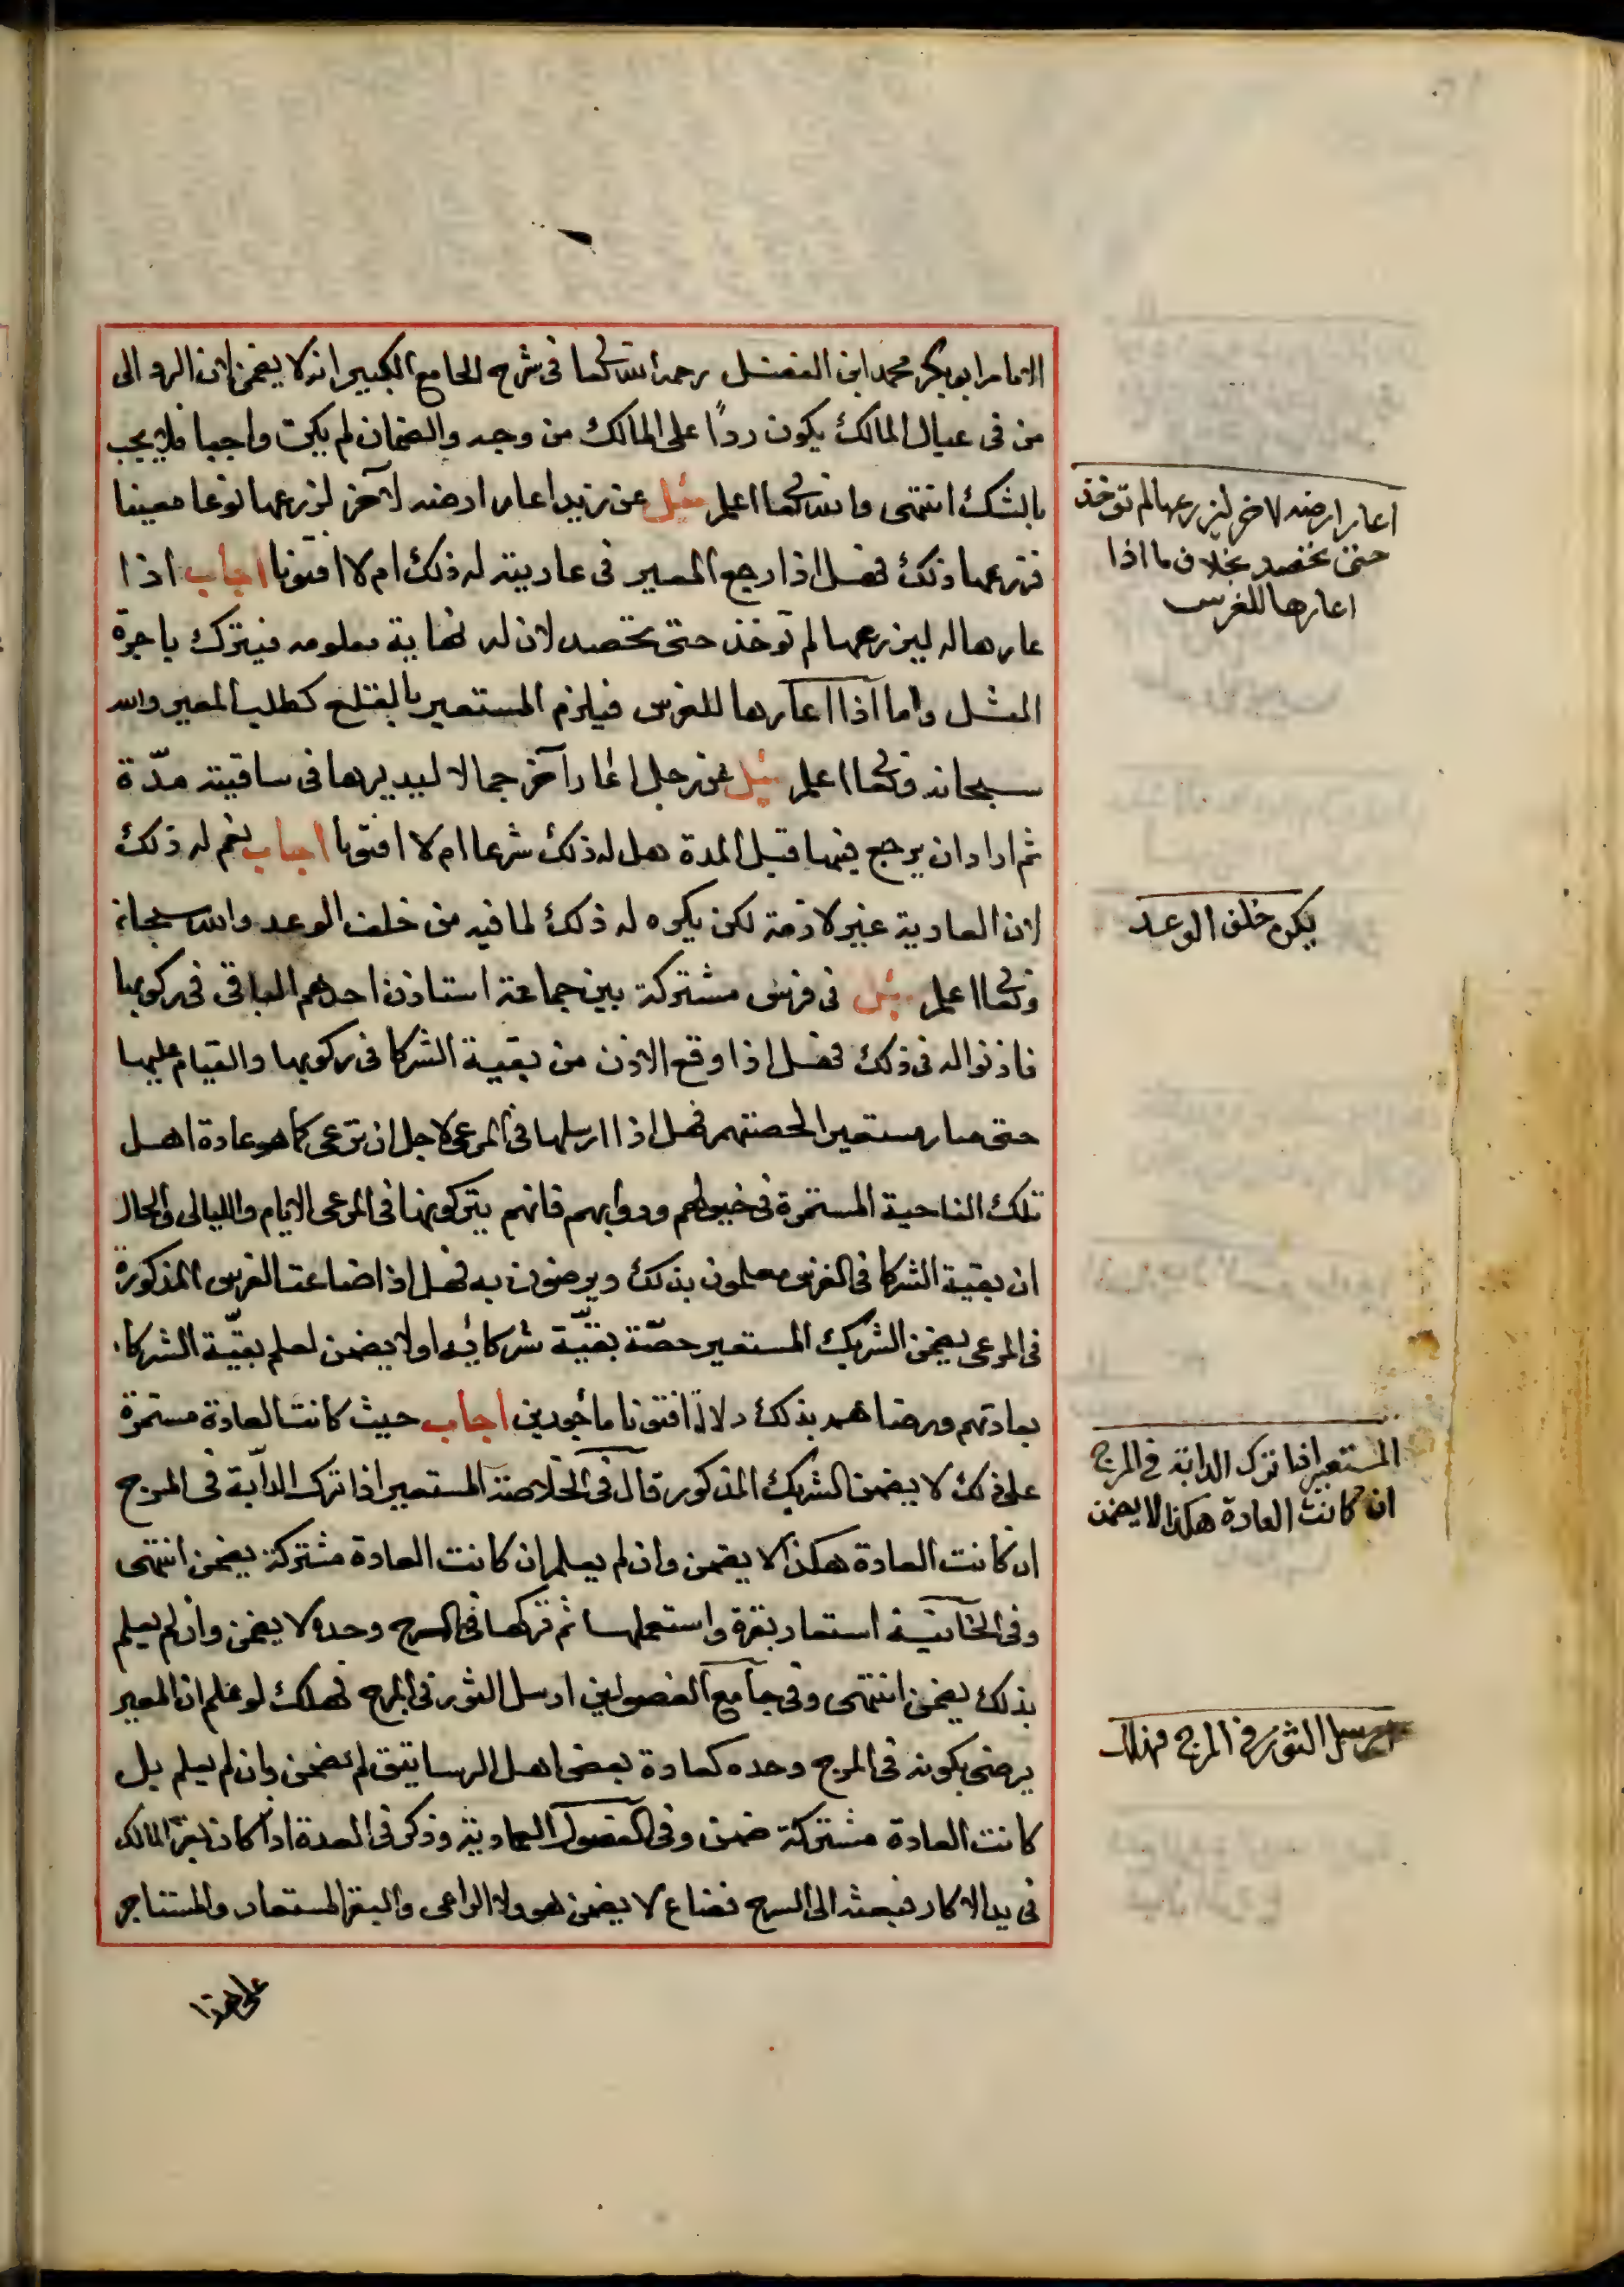 الامام ابو بكر محمد ابن الفضل رحمه الله تعالى في شرح الجامع الكبير انه لا يضمن لان الرد الى
من في عيال المالك يكون ردًا على المالك من وجه والضمان لم يكن واجبا فلا يجب
بالشك انتهى والله تعالى اعلم سئل عن زيد اعار ارضه لآخر لزرعها نوعا معينا
فزرعها ذلك فهل اذا رجع المعير في عاريته له ذلك ام لا افتونا اجاب اذا
عارها له ليزرعها لم تؤخذ حتى تحصد لان له نهاية معلومه فيترك باجرة
المثل واما اذا اعارها للغرس فيلزم المستعير بالقلع كطلب المعير والله
سبحانه وتعالى اعلم سئل عن رجل اعار آخر جمالا ليديرها في ساقيته مدّة
ثم اراد ان يرجع فيها قبل المدة هل له ذلك شرعا ام لا افتونا اجاب نعم له ذلك
لان العارية غير لازمة لكن يكره له ذلك لما فيه من خلف الوعد والله سبحانه
وتعالى اعلم سئل في فرس مشتركة بين جماعة استاذن احدهم الباقي في ركوبها
فاذنوا له في ذلك فهل اذا وقع الاذن من بقية الشركا في ركوبها والقيام عليها
حتى صار مستعيرا لحصتهم فهل اذا ارسلها في المرعى لاجل ان ترعى كما هو عادة اهل
تلك الناحية المستمرة في خيولهم ودوابهم فانهم يتركونها في المرعى الايام والليالي والحال
ان بقية الشركا في الفرس يعلمون بذلك ويرضون به فهل اذا ضاعت الفرس المذكورة
في المرعى يضمن الشريك المستعير حصّة بقيّة شركائه او لا يضمن لعلم بقيّة الشركاء
بعادتهم ورضاهم بذلك دلالة افتونا مأجورين اجاب حيث كانت العادة مستمرة
على ذلك لا يضمن الشريك المذكور قال في الخلاصة المستعير اذا ترك الدآبة في المرج
ان كانت العادة هكذا لا يضمن وان لم يعلم ان كانت العادة مشتركة يضمن انتهى
وفي الخانية استعار بقرة واستعملها ثم تركها في السرح وحده لا يضمن وان لم يعلم
بذلك يضمن انتهى وفي جامع الفصولين ارسل الثور في المرج فهلك لو علم ان المعير
يرضى بكونه في المرج وحده كعادة بعض اهل الرساتيق لم يضمن وان لم يعلم بل
كانت العادة مشتركة ضمن وفي الفصول العمادية وذكر في العدة اذا كان بقر المالك
في يد الاكار فبعثه الى السرح فضاع لا يضمن هو ولا الراعي والبقر المستعار والمستاجر
على هذا
اعار ارضه لاخر ليزرعها لم تؤخذ
حتى تحصد بخلاف ما اذا
اعارها للغرس
يكره خلف الوعد
المستعير اذا ترك الدابة في المرج
ان كانت العادة هكذا لا يضمن
ارسل الثور في المرج فهلك